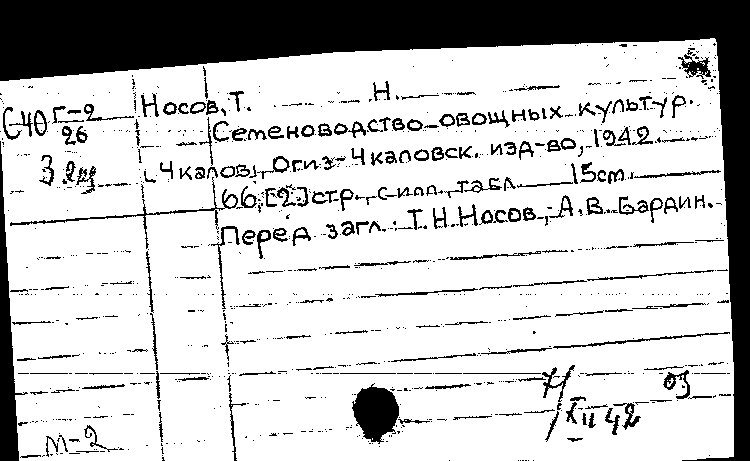 С40 Г-2
26
3 экз
Носов, Т. Н.
Семеноводство овощных культур.
[Чкалов], Огиз-Чкаловск. изд-во, 1942.
66,[2]стр., с илл., табл. 15см.
Перед загл.: Т.Н.Носов, А.В.Бардин.
7/XII 42 03
М-2